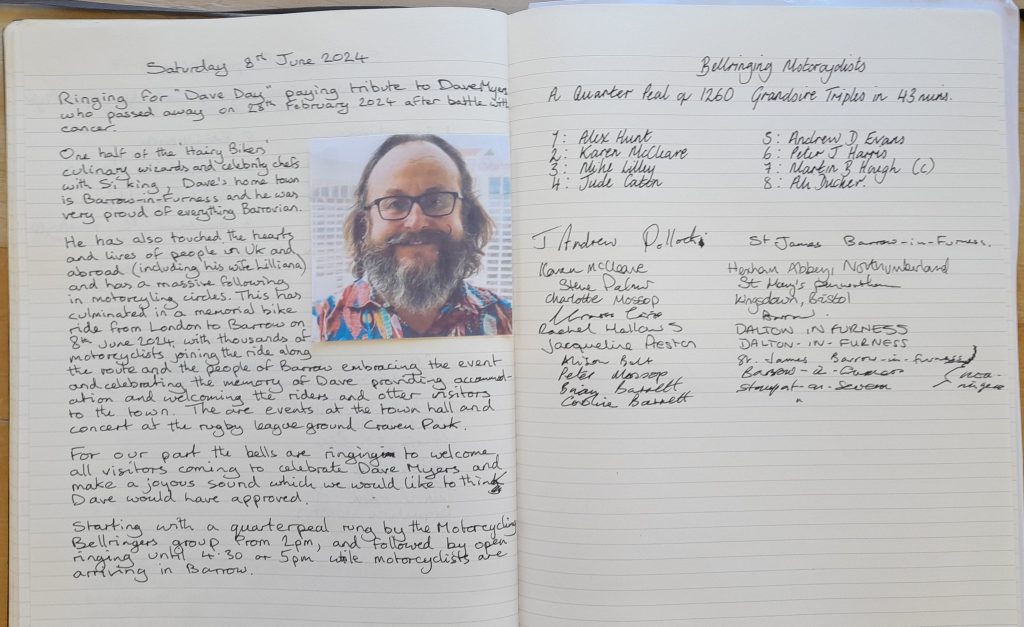 Saturday 8th June 2024
Ringing for "Dave Day" paying tribute to Dave Myers
who passed away on 28th February 2024 after battle with
cancer.
One half of the 'Hairy Bikers'
culinary wizards and celebrity chefs
with Si King, Dave's home town
is Barrow-in-Furness and he was
very proud of everything Barrovian.
He has also touched the hearts
and lives of people in UK and
abroad (including his wife Lilliana)
and has a massive following
in motorcyling circles. This has
culminated in a memorial bike
ride from London to Barrow on
8th June 2024, with thousands of
motorcyclists joining the ride along
the route and the people of Barrow embracing the event
and celebrating the memory of Dave providing accommod-
ation and welcoming the riders and other visitors
to the town. The are events at the town hall and
concert at the rugby league ground Craven Park.
For our part the bells are ringing to welcome
all visitors coming to celebrate Dave Myers and
make a joyous sound which we would like to think
Dave would have approved.
Starting with a quarterpeal rung by the Motorcycling
Bellringers group from 2pm, and followed by open
ringing until 4.30 or 5pm while motorcyclists are
arriving in Barrow.
Bellringing Motorcyclists
A Quarter Peal of 1260 Grandsire Triples in 43 mins.
1: Alex Hunt 5: Andrew D Evans
2: Karen McCleare 6: Peter J Harris
3: Mike Lilley 7: Martin B Hough (C)
4: Jude Caton 8: Ali Ducker.
J Andrew Pollock St James Barrow-in-Furness.
Karen McCleare Hexham Abbey, Northumberland
Steve Palmer St Mary's
Charlotte Mossop Kingsdown, Bristol
Barrow
Rachel Hallows DALTON IN FURNESS
Jacqueline Preston DALTON-IN-FURNESS
Alison Bult St. James Barrow-in-Furness
Peter Mossop Barrow-in-Furness
Barnett Stourport-on-Severn
Caroline Barnett "
non-
ringers